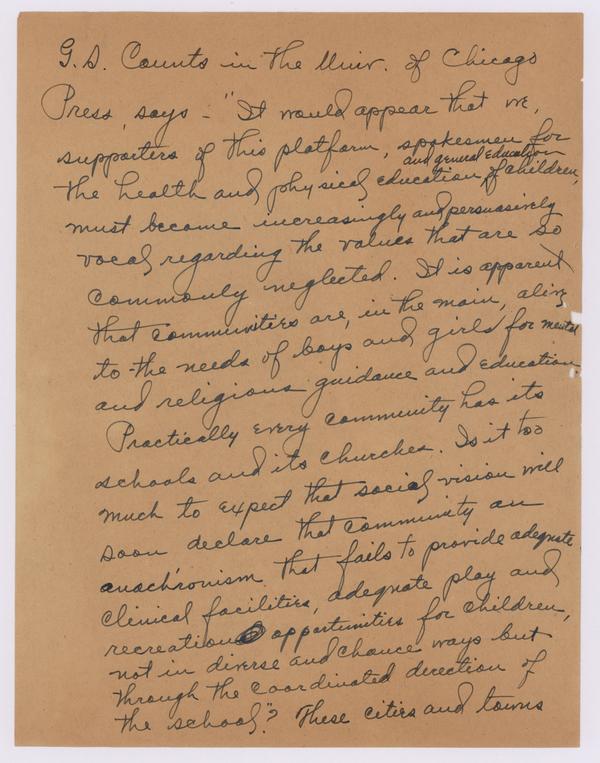 G. S. Counts in the Univ. of Chicago
Press, says - "It would appear that we,
supporters of this platform, spokesmen for
and general education
the health and physical education of children,
must become increasingly and persuasively
vocal regarding the values that are so
commonly neglected. It is apparent
that communities are, in the main, alive
to the needs of boys and girls for mental
and religious guidance and education.
Practically every community has its
schools and its churches. Is it too
much to expect that social vision will
soon declare that community an
anachronism that fails to provide adequate
clinical facilities, adequate play and
recreation opportunities for children,
not in diverse and chance ways but
through the coordinated direction of
the school"? These cities and towns